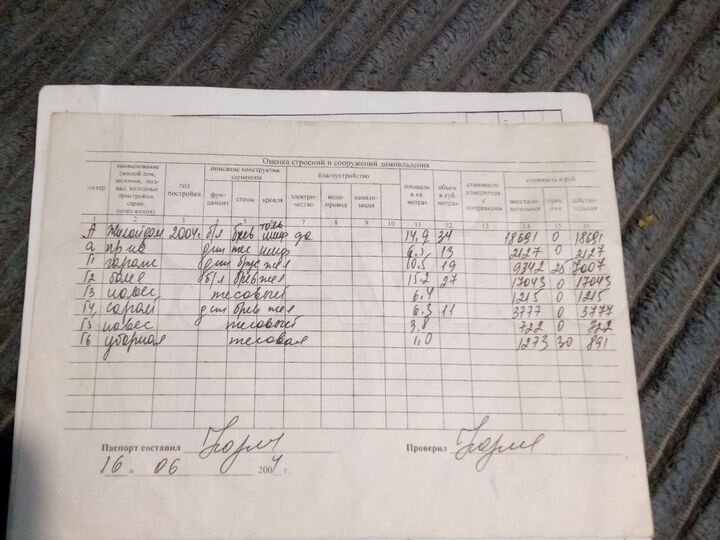 Оценка строений и сооружений домовладения
литер наименование (жилой дом, мезонин, подвал, холодные пристройки, сарай, сооружения) год постройки описание конструктив элементов благоустройство площадь в кв метрах объем в куб метрах стоимости измерителя с поправками стоимость в руб
фундамент стены кровля электричество водопровод канализация восстановительная действительная
1 2 3 4 5 6 7 8 9 10 11 12 13 14 15 16
А жилой дом 2004г. б/л брев шиф да 14.9 34 18691 0 18691
а шиф 6.5 13 2127 0 2127
Г1 гараж брус жел 10.5 19 9342 25 7007
Г2 баня б/л брев жел 15.2 27 17043 0 17043
Г3 навес тесовый 6.4 1215 0 1215
Г4 сарай брев жел 6.3 11 3777 0 3777
Г5 навес тесовый 3.8 722 0
Г6 уборная тесовая 1.0 1273 30 891
Паспорт составил Проверил
16 " 06 2004 г.